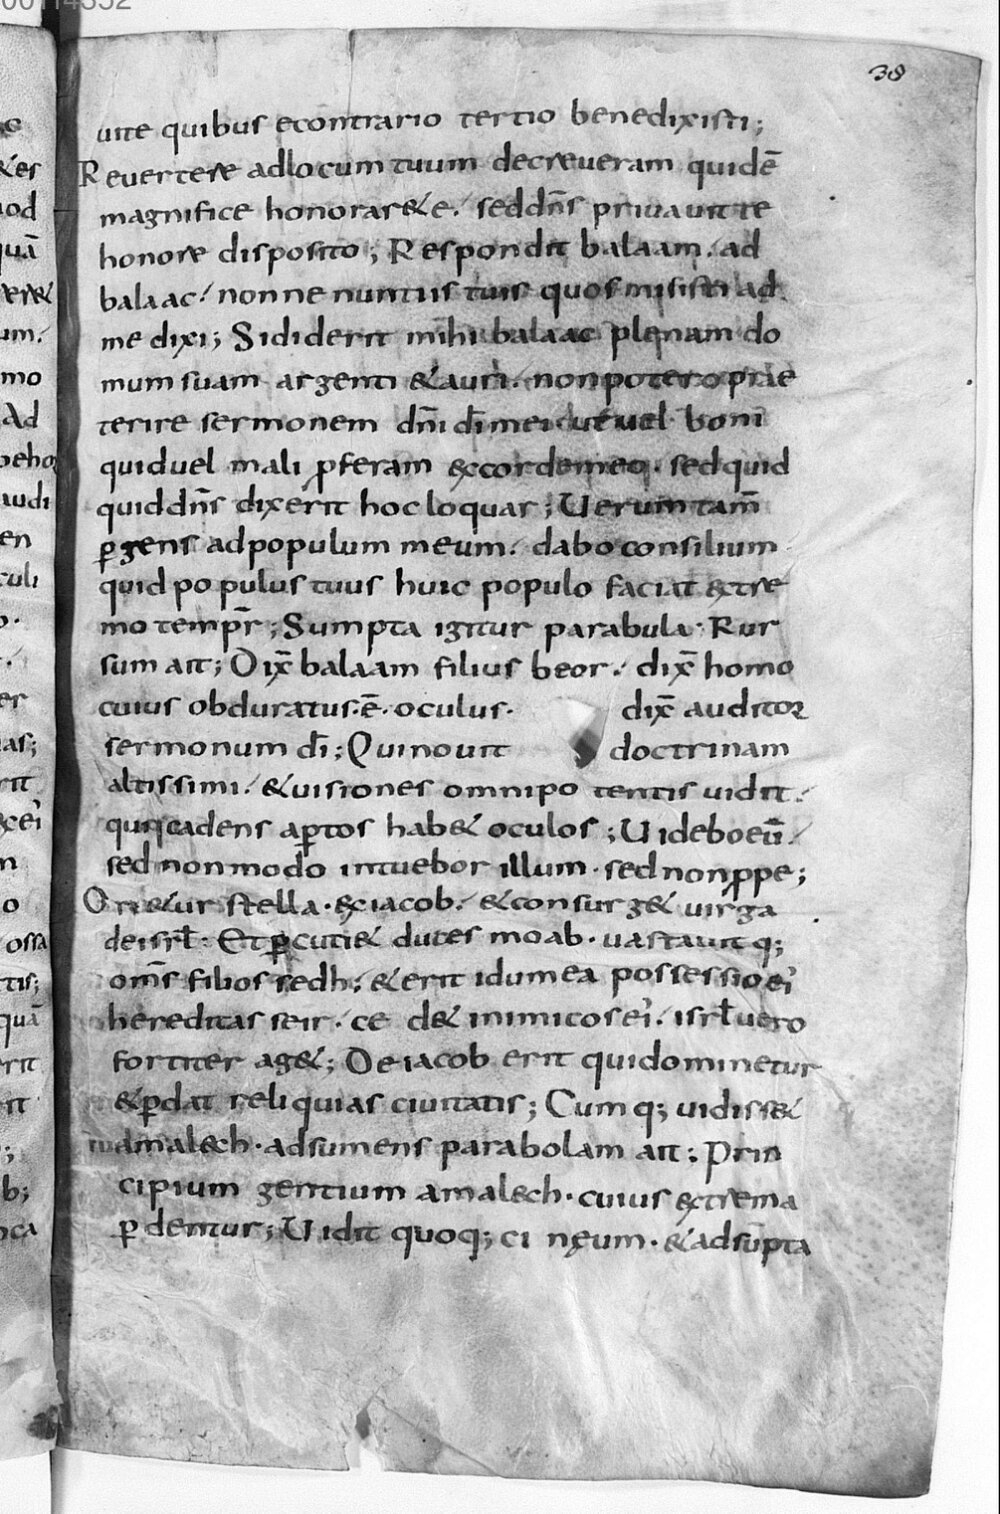 38
uite quibus econtrario tertio benedixisti;
Reuertere adlocum tuum decreueram quidē
magnifice honorare&e. seddn̄s priuauit te
honore disposito; Respondit balaam. ad
balaac. nonne nuntiis tuis quos misisti ad
me dixi; Sididerit mihi balaac plenam do
mum suam argenti &auri. nonpotero p̄te
terire sermonem dn̄i dī mei ut uel boni
quid uel mali p̱feram excordemeo. sedquid
quiddn̄s dixerit hoc loquar; Uerumtam̄
p̱gens adpopulum meum. dabo consilium
quid populus tuus huic populo faciat extre
mo tempr̄; Sumpta igitur parabula. Rur
sum ait; Dix̄ balaam filius beor. dix̄ homo
cuius obduratus.ē. oculus. dix̄ auditor
sermonum dī; Quinouit doctrinam
altissimi. &uisiones omnipotentis uidit.
quicadens ap̱tos hab& oculos; Uideboeū.
sed nonmodo intuebor illum. sed nonp̱pe;
Ori&ur stella. exiacob. &consurg& uirga
deisrł. Et p̱cuti& duces moab. uastauitq;
om̄s filios sedh. &erit idumea possessioei
hereditas seir. ce d& inimicosei. isrł uero
fortiter ag&; Deiacob erit quidominetur
&p̱dat reliquias ciuitatis; Cumq; uidiss&
amalech. adsumens parabolam ait; Prin
cipium gentium amalech. cuius extrema
p̱dentur; Uidit quoq; cinęum. &adsūpta